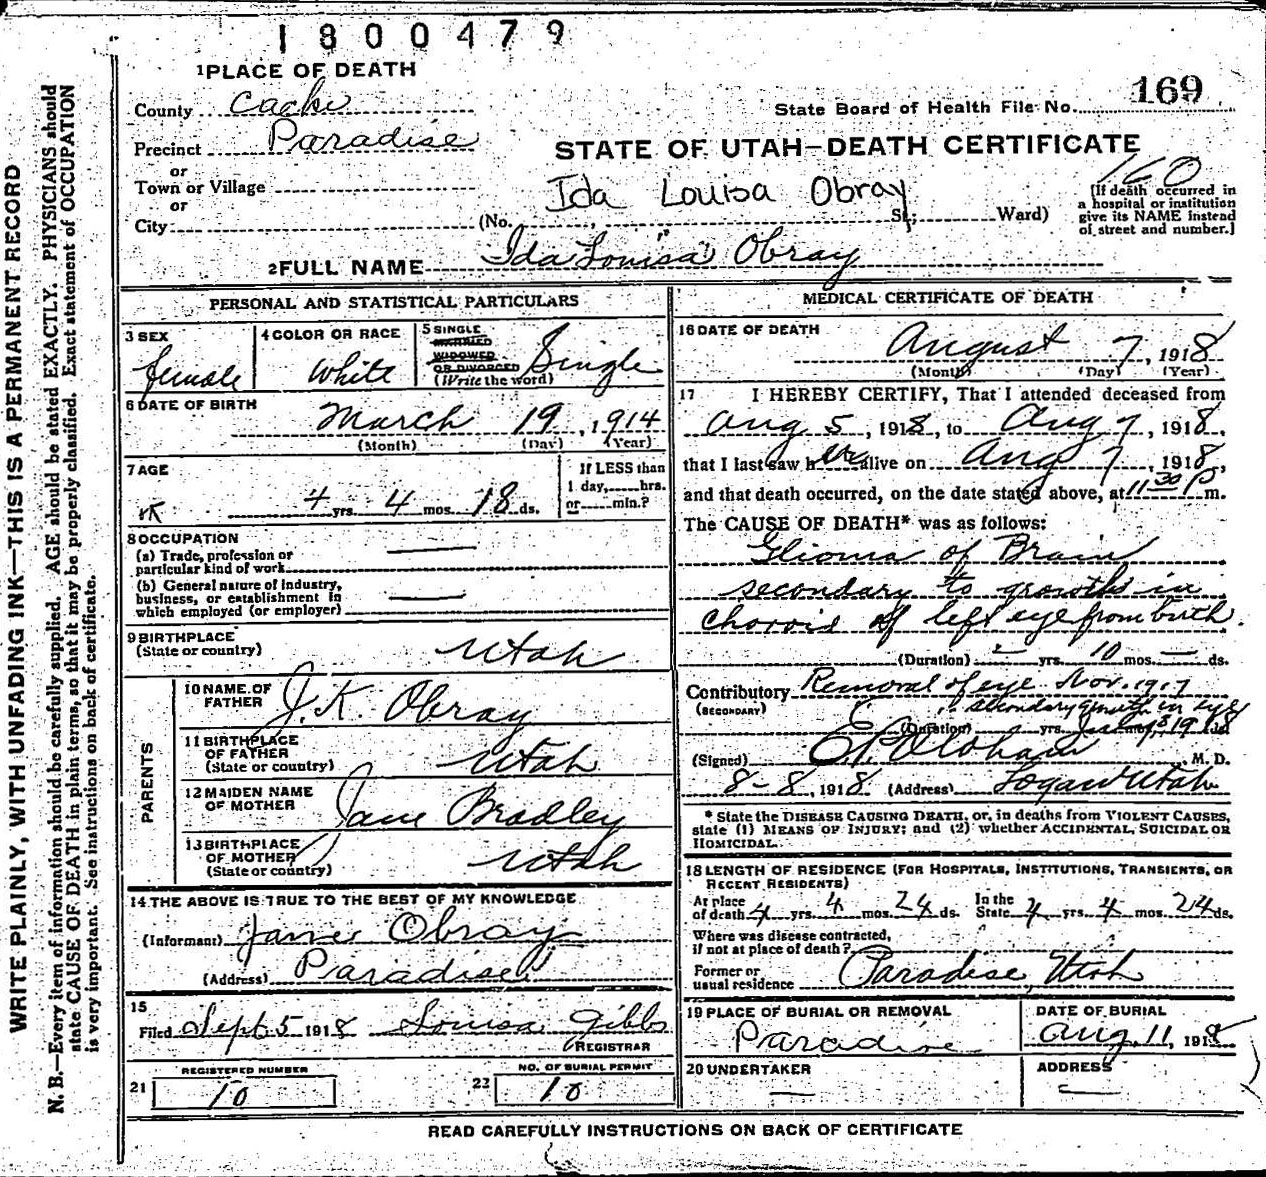 1800479
1 PLACE OF DEATH
County Cache
Precinct Paradise
or
Town or Village
or
City
State Board of Health File No. 169
STATE OF UTAH—DEATH CERTIFICATE
160
Ida Louisa Obray
(No. St; Ward)
[If death occurred in
a hospital or institution
give its NAME instead
of street and number.]
2 FULL NAME Ida "Louisa" Obray
PERSONAL AND STATISTICAL PARTICULARS
3 SEX
female
4 COLOR OR RACE
White
5 SINGLE
MARRIED
WIDOWED
OR DIVORCED
(Write the word)
Single
6 DATE OF BIRTH
March 19, 1914
(Month) (Day) (Year)
7 AGE
4 yrs. 4 mos. 18 ds.
If LESS than
1 day, hrs.
or min.?
8 OCCUPATION
(a) Trade, profession or
particular kind of work
(b) General nature of industry,
business, or establishment in
which employed (or employer)
9 BIRTHPLACE
(State or country)
Utah
PARENTS
10 NAME OF
FATHER
J. K. Obray
11 BIRTHPLACE
OF FATHER
(State or country)
Utah
12 MAIDEN NAME
OF MOTHER
Jane Bradley
13 BIRTHPLACE
OF MOTHER
(State or country)
Utah
14 THE ABOVE IS TRUE TO THE BEST OF MY KNOWLEDGE
(Informant) Jane Obray
(Address) Paradise
15
Filed Sept 5 1918 Louisa Gibbs
REGISTRAR
REGISTERED NUMBER
21 10
NO. OF BURIAL PERMIT
22 10
MEDICAL CERTIFICATE OF DEATH
16 DATE OF DEATH
August 7, 1918
(Month) (Day) (Year)
17 I HEREBY CERTIFY, That I attended deceased from
Aug 5, 1918, to Aug 7, 1918,
that I last saw her alive on Aug 7, 1918,
and that death occurred, on the date stated above, at 11 30 P m.
The CAUSE OF DEATH* was as follows:
Glioma of Brain
secondary to growth in
choroid of left eye from birth.
(Duration) yrs. 10 mos. ds.
Contributory Removal of eye Nov. 1917
(SECONDARY)
secondary growth in eye
(Duration) yrs. 1918 ds.
(Signed) M. D.
8-8, 1918 (Address) Logan Utah
* State the DISEASE CAUSING DEATH, or, in deaths from VIOLENT CAUSES,
state (1) MEANS OF INJURY; and (2) whether ACCIDENTAL, SUICIDAL OR
HOMICIDAL.
18 LENGTH OF RESIDENCE (FOR HOSPITALS, INSTITUTIONS, TRANSIENTS, OR
RECENT RESIDENTS)
At place
of death 4 yrs. 4 mos. 24 ds.
In the
State 4 yrs. 4 mos. 24 ds.
Where was disease contracted,
if not at place of death?
Former or
usual residence Paradise, Utah
19 PLACE OF BURIAL OR REMOVAL
Paradise
DATE OF BURIAL
Aug. 11, 1918
20 UNDERTAKER
ADDRESS
READ CAREFULLY INSTRUCTIONS ON BACK OF CERTIFICATE
WRITE PLAINLY, WITH UNFADING INK—THIS IS A PERMANENT RECORD
N. B.—Every item of information should be carefully supplied. AGE should be stated EXACTLY. PHYSICIANS should
state CAUSE OF DEATH in plain terms, so that it may be properly classified. Exact statement of OCCUPATION
is very important. See instructions on back of certificate.